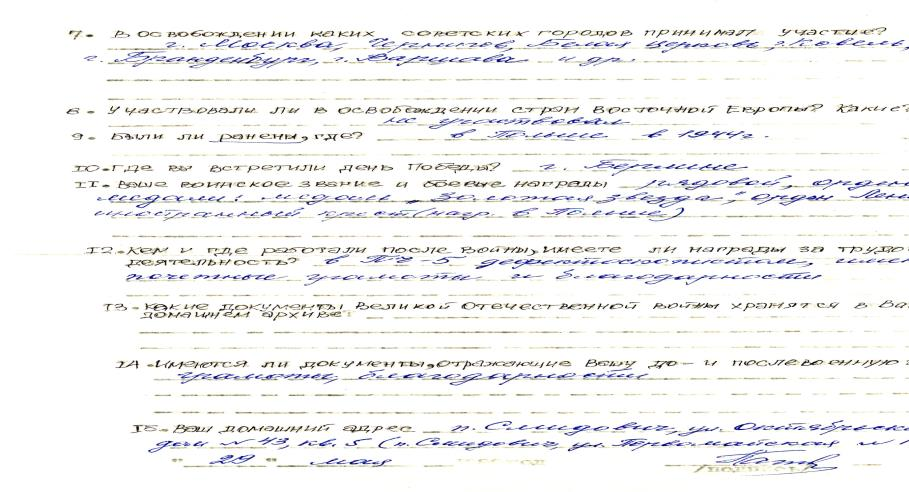 7. В освобождении каких советских городов принимал участие?
г. Москва, Чернигов, Белая Церковь, г. Ковель,
г. Бранденбург, г. Варшава и др.
8. Участвовали ли в освобождении стран Восточной Европы? Какие?
не участвовал
9. Были ли ранены, где? в Польше в 1944г.
10. Где вы встретили день Победы? г. Берлине
11. Ваше воинское звание и боевые награды рядовой, орден
медали: медаль „Золотая звезда", орден Лен
иностранный крест (нагр. в Польше)
12. Кем и где работали после войны, имеете ли награды за трудо
деятельность? в ПЧ-5 дефектоскопистом, име
почетные грамоты и благодарности
13. Какие документы Великой Отечественной войны хранятся в Ва
домашнем архиве
14. Имеются ли документы, отражающие Вашу до- и послевоенную
грамоты, благодарности
15. Ваш домашний адрес п. Смидович, ул. Октябрьск
дом № 43, кв. 5 (п. Смидович, ул. Первомайская
" 29 " мая
/подпись/